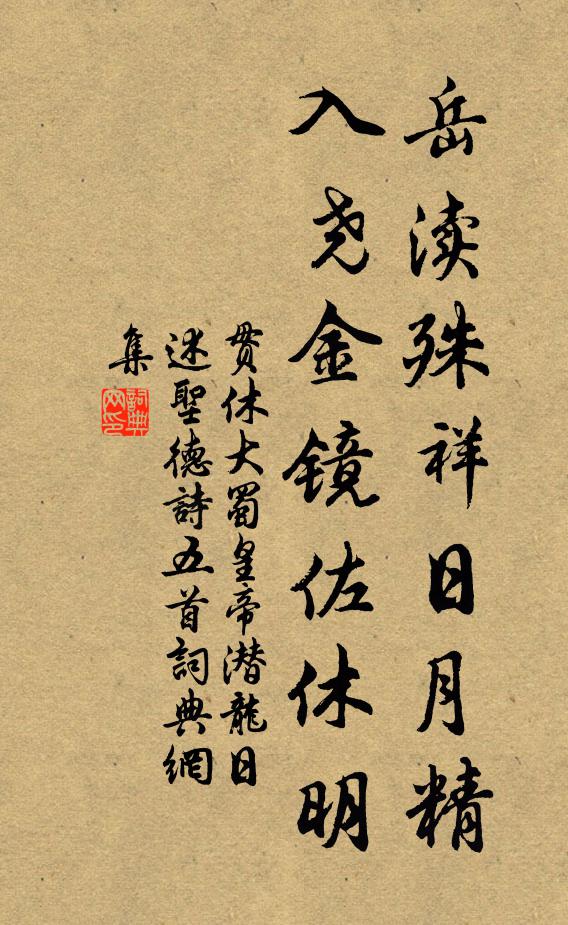 岳渎殊祥日月精
入尧金镜佐休明
贯休大蜀皇帝潜龍日
述聖德詩五首詞典網
集
詞典
网印